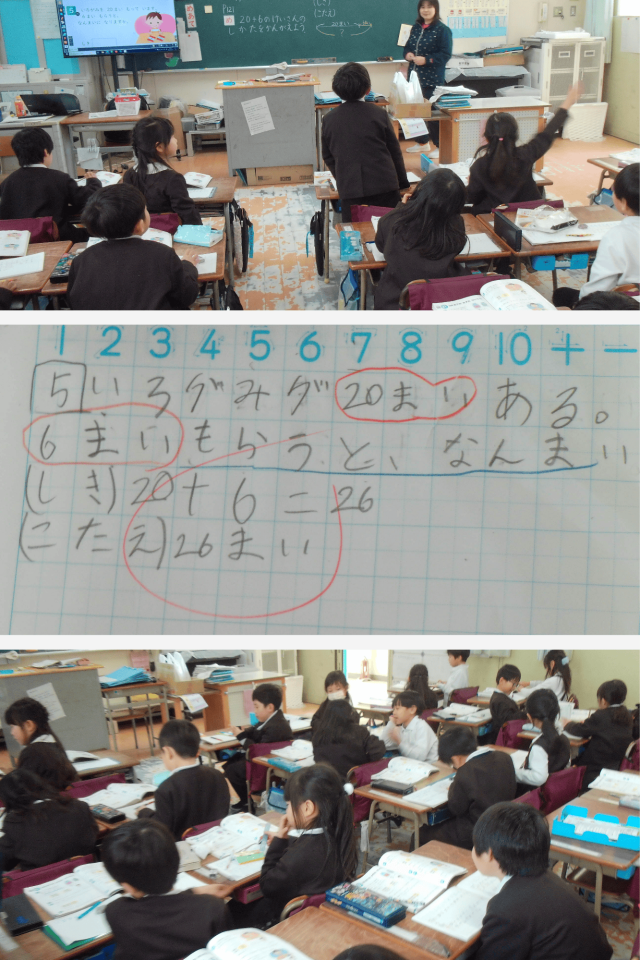 P121
め 20+6のけいさんの
しかたをかんがえよう
(しき)
(こたえ)
1 2 3 4 5 6 7 8 9 10 + −
5 いろがみが20まいある。
6まいもらうと、なんまい
(しき)20+6=26
(こたえ)26まい